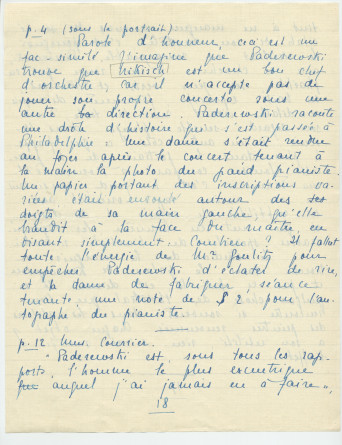 p. 4 (sous le portrait)
Parole d'honneur, ceci est un
fac-similé. J'imagine que Paderewski
trouve que Nikisch est un bon chef
d'orchestre car il n'accepte pas de
jouer son propre concerto sous une
autre direction. Paderewski raconte
une drôle d'histoire qui s'est passée à
Philadelphie: Une dame s'était rendue
au foyer après le concert tenant à
la main la photo du grand pianiste.
Un papier portant des inscriptions va-
riées était enroulé autour des
doigts de sa main gauche qu'elle
brandit à la face du maître en
disant simplement Combien? Il fallut
toute l'énergie de Mr Goulitz pour
empêcher Paderewski d'éclater de rire,
et la dame de fabriquer, séance
tenante, une note de $2 pour l'au-
tographe du pianiste.
p. 12 Mus. Courrier.
"Paderewski est, sous tous les rap-
ports, l'homme le plus excentrique
auquel j'ai jamais eu à faire",
18